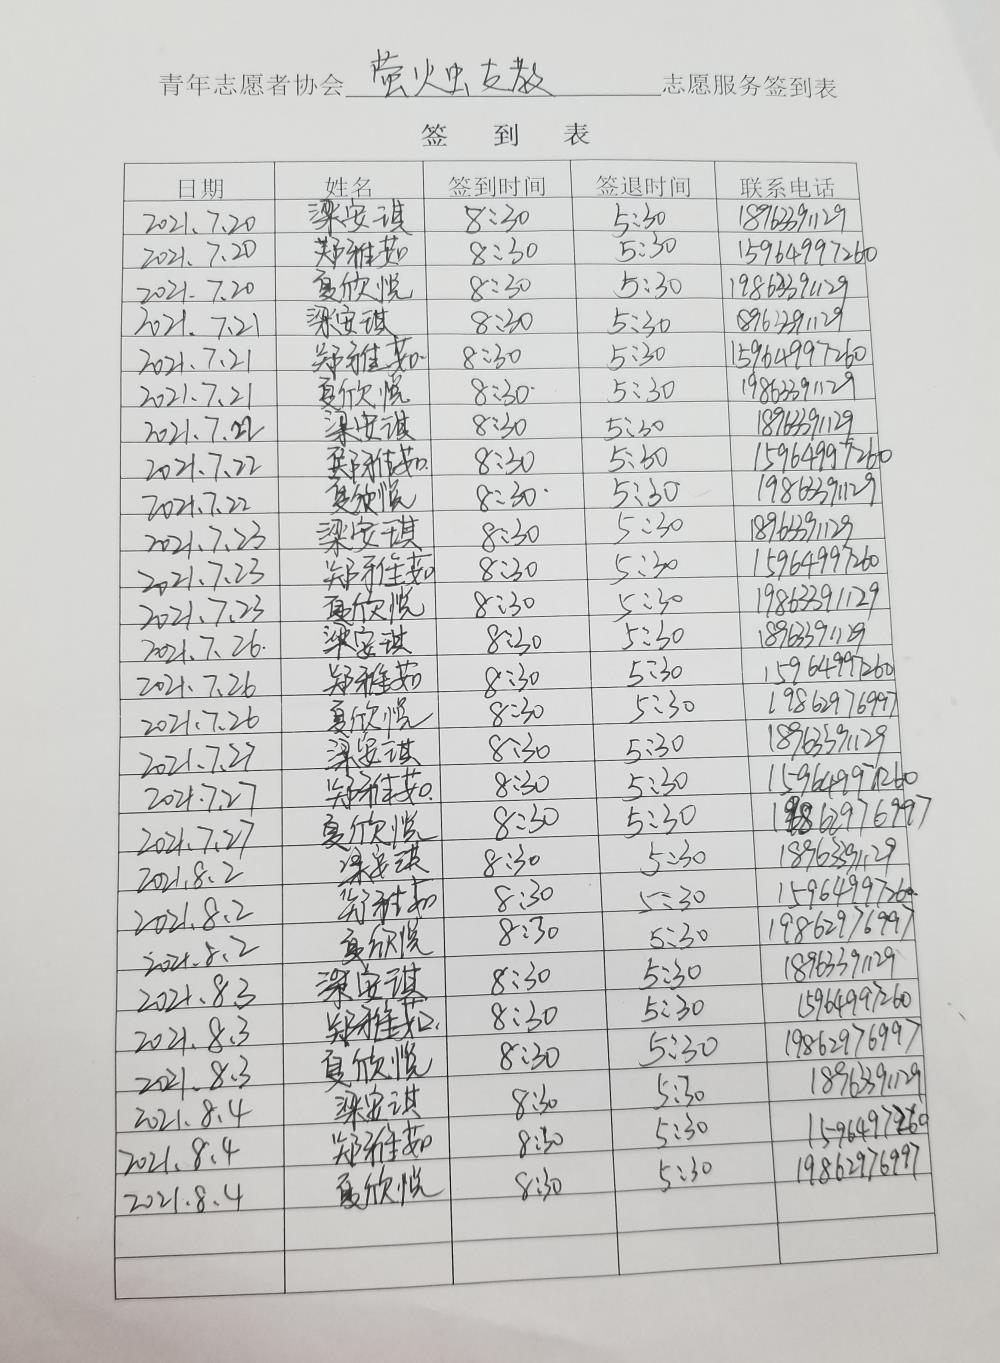 青年志愿者协会 萤火虫支教 志愿服务签到表
签 到 表
日期 姓名 签到时间 签退时间 联系电话
2021.7.20 梁安琪 8:30 5:30 18963391129
2021.7.20 郑雅茹 8:30 5:30 15964997260
2021.7.20 夏欣悦 8:30 5:30 19863391129
2021.7.21 梁安琪 8:30 5:30 18963391129
2021.7.21 郑雅茹 8:30 5:30 15964997260
2021.7.21 夏欣悦 8:30 5:30 19863391129
2021.7.22 梁安琪 8:30 5:30 18963391129
2021.7.22 郑雅茹 8:30 5:30 15964997260
2021.7.22 夏欣悦 8:30 5:30 19863391129
2021.7.23 梁安琪 8:30 5:30 18963391129
2021.7.23 郑雅茹 8:30 5:30 15964997260
2021.7.23 夏欣悦 8:30 5:30 19863391129
2021.7.26 梁安琪 8:30 5:30 18963391129
2021.7.26 郑雅茹 8:30 5:30 15964997260
2021.7.26 夏欣悦 8:30 5:30 19862976997
2021.7.27 梁安琪 8:30 5:30 18963391129
2021.7.27 郑雅茹 8:30 5:30 15964997260
2021.7.27 夏欣悦 8:30 5:30 19862976997
2021.8.2 梁安琪 8:30 5:30 18963391129
2021.8.2 郑雅茹 8:30 5:30 15964997260
2021.8.2 夏欣悦 8:30 5:30 19862976997
2021.8.3 梁安琪 8:30 5:30 18963391129
2021.8.3 郑雅茹 8:30 5:30 15964997260
2021.8.3 夏欣悦 8:30 5:30 19862976997
2021.8.4 梁安琪 8:30 5:30 18963391129
2021.8.4 郑雅茹 8:30 5:30 1596497260
2021.8.4 夏欣悦 8:30 5:30 19862976997